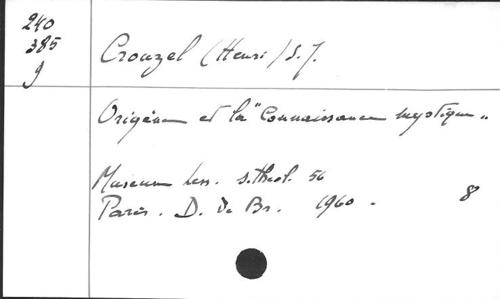 240
385
9
Crouzel (Henri) S.J.
Origène et la "Connaissance mystique"
Museum Less. S. theol. 56
Paris. D. De Br. 1960. 8